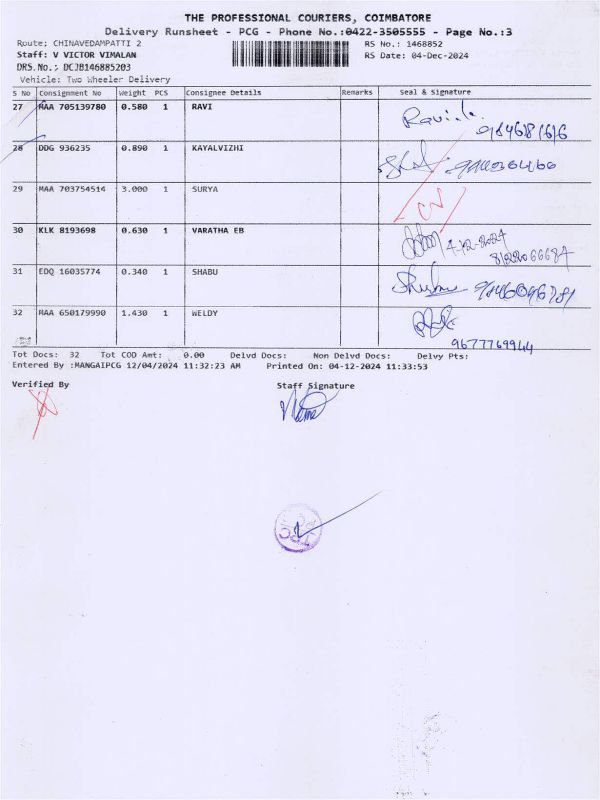 THE PROFESSIONAL COURIERS, COIMBATORE
Delivery Runsheet - PCG - Phone No.:0422-3505555 - Page No.:3
Route: CHINAVEDAMPATTI 2
RS No.: 1468852
Staff: V VICTOR VIMALAN
RS Date: 04-Dec-2024
DRS.No.: DCJB146885203
Vehicle: Two Wheeler Delivery
S No Consignment No Weight PCS Consignee Details Remarks Seal & Signature
27 MAA 705139780 0.580 1 RAVI
28 DDG 936235 0.890 1 KAYALVIZHI
29 MAA 703754514 3.000 1 SURYA
30 KLK 8193698 0.630 1 VARATHA EB 4-12-2024
31 EDQ 16035774 0.340 1 SHABU
32 MAA 650179990 1.430 1 WELDY
9677769944
Tot Docs: 32 Tot COD Amt: 0.00 Delvd Docs: Non Delvd Docs: Delvy Pts:
Entered By :MANGAIPCG 12/04/2024 11:32:23 AM Printed On: 04-12-2024 11:33:53
Verified By Staff Signature